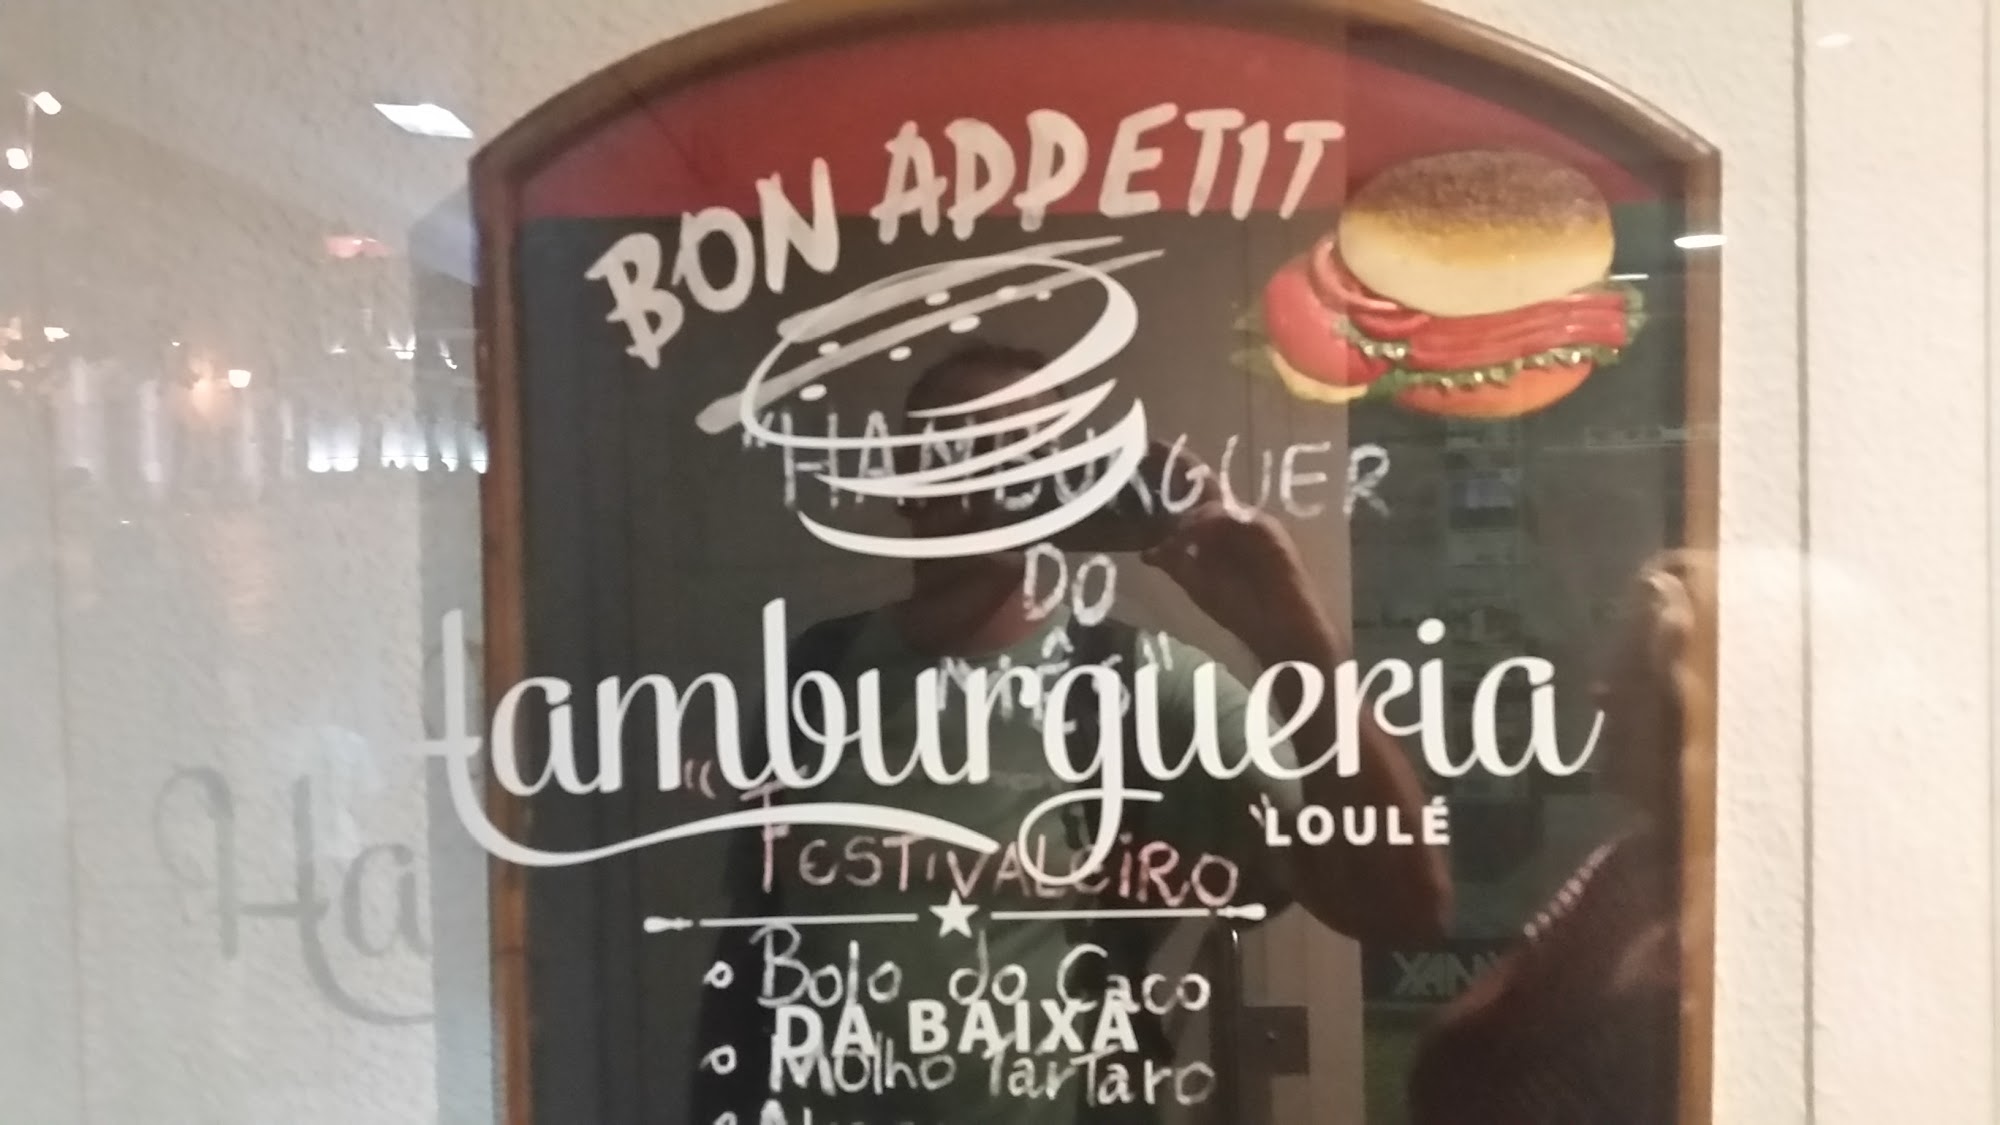 BON APPETIT
"HAMBURGUER
DO
MÊS"
Hamburgueria
LOULÉ
"FESTIVALEIRO
Bolo do Caco
DA BAIXA
Molho Tártaro
Ha